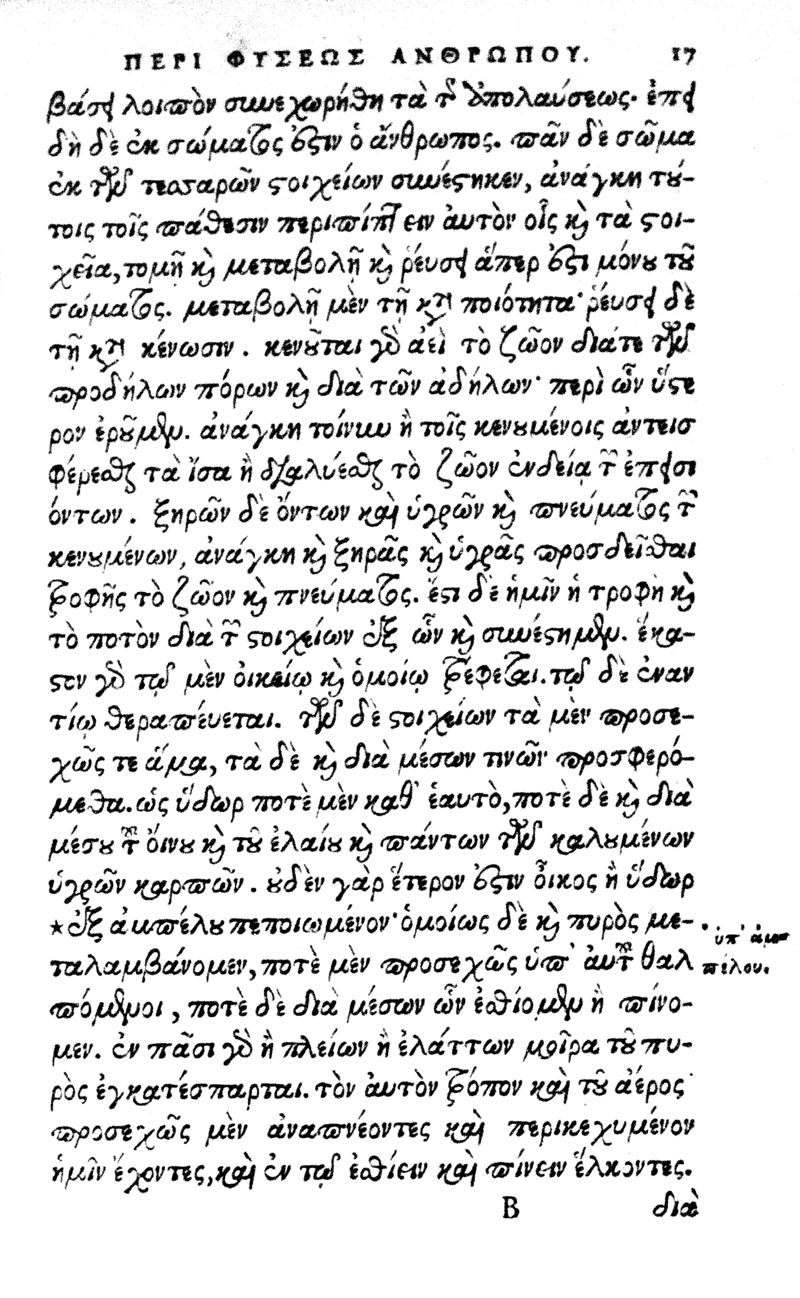 ΠΕΡΙ ΦΥΣΕΩΣ ΑΝΘΡΩΠΟΥ. 17
βάσει λοιπὸν συνεχωρήθη τὰ τῆς ἀπολαύσεως· ἐπει
δὴ δὲ ἐκ σώματος ἐστιν ὁ ἄνθρωπος. πᾶν δὲ σῶμα
ἐκ τῶν τεσσαρῶν στοιχείων συνέστηκεν, ἀνάγκη τού-
τοις τοῖς πάθεσιν περιπίπτειν ἀυτὸν οἷς καὶ τὰ στοι-
χεῖα, τομῇ καὶ μεταβολῇ καὶ ῥεύσει ἅπερ ἐστι μόνου τοῦ
σώματος. μεταβολῇ μὲν τῇ κατὰ ποιότητα· ῥεύσει δὲ
τῇ κατὰ κένωσιν. κενοῦται γὰρ ἀεὶ τὸ ζῶον διάτε τῶν
προδήλων πόρων καὶ διὰ τῶν ἀδήλων· περὶ ὧν ὕστε
ρον ἐροῦμεν. ἀνάγκη τοίνυν ἢ τοῖς κενουμένοις ἀντεισ
φέρεσθαι τὰ ἴσα ἢ διαλύεσθαι τὸ ζῶον ἐνδείᾳ τῶν ἐπεισι
όντων. ξηρῶν δὲ ὄντων καὶ ὑγρῶν καὶ πνεύματος τῶν
κενουμένων, ἀνάγκη καὶ ξηρᾶς καὶ ὑγρᾶς προσδεῖσθαι
τροφῆς τὸ ζῶον καὶ πνεύματος. ἔστι δὲ ἡμῖν ἡ τροφὴ καὶ
τὸ ποτὸν διὰ τῶν στοιχείων ἐξ ὧν καὶ συνέστημεν. ἕκα-
στον γὰρ τῷ μὲν οἰκείῳ καὶ ὁμοίῳ τρέφεται. τῷ δὲ ἐναν
τίῳ θεραπέυεται. τῶν δὲ στοιχείων τὰ μὲν προσε-
χῶς τε ἅμα, τὰ δὲ καὶ διὰ μέσων τινῶν προσφερό-
μεθα. ὡς ὕδωρ ποτὲ μὲν καθ' ἑαυτὸ, ποτὲ δὲ καὶ διὰ
μέσου τοῦ ὄινου καὶ τοῦ ἐλαίου καὶ πάντων τῶν καλουμένων
ὑγρῶν καρπῶν. οὐδὲν γὰρ ἕτερον ἐστιν οἶκος ἢ ὕδωρ
*ἐξ ἀμπέλου πεποιωμένον· ὁμοίως δὲ καὶ πυρὸς με-
ταλαμβάνομεν, ποτὲ μὲν προσεχῶς ὑπ' ἀυτοῦ θαλ
πόμενοι, ποτὲ δὲ διὰ μέσων ὧν ἐσθίομεν ἢ πίνο-
μεν. ἐν πᾶσι γὰρ ἢ πλείων ἢ ἐλάττων μοῖρα τοῦ πυ-
ρὸς ἐγκατέσπαρται. τὸν ἀυτὸν τρόπον καὶ τοῦ ἀέρος
προσεχῶς μὲν ἀναπνέοντες καὶ περικεχυμένον
ἡμῖν ἔχοντες, καὶ ἐν τῷ ἐσθίειν καὶ πίνειν ἕλκοντες.
B διὰ
ὑπ' ἀμ
πέλου.